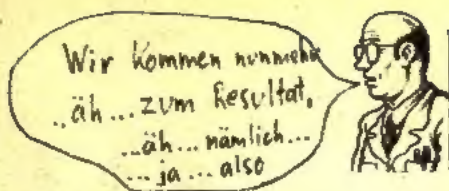 Wir kommen nunmehr
..äh...zum Resultat,
..äh...nämlich...
...ja...also